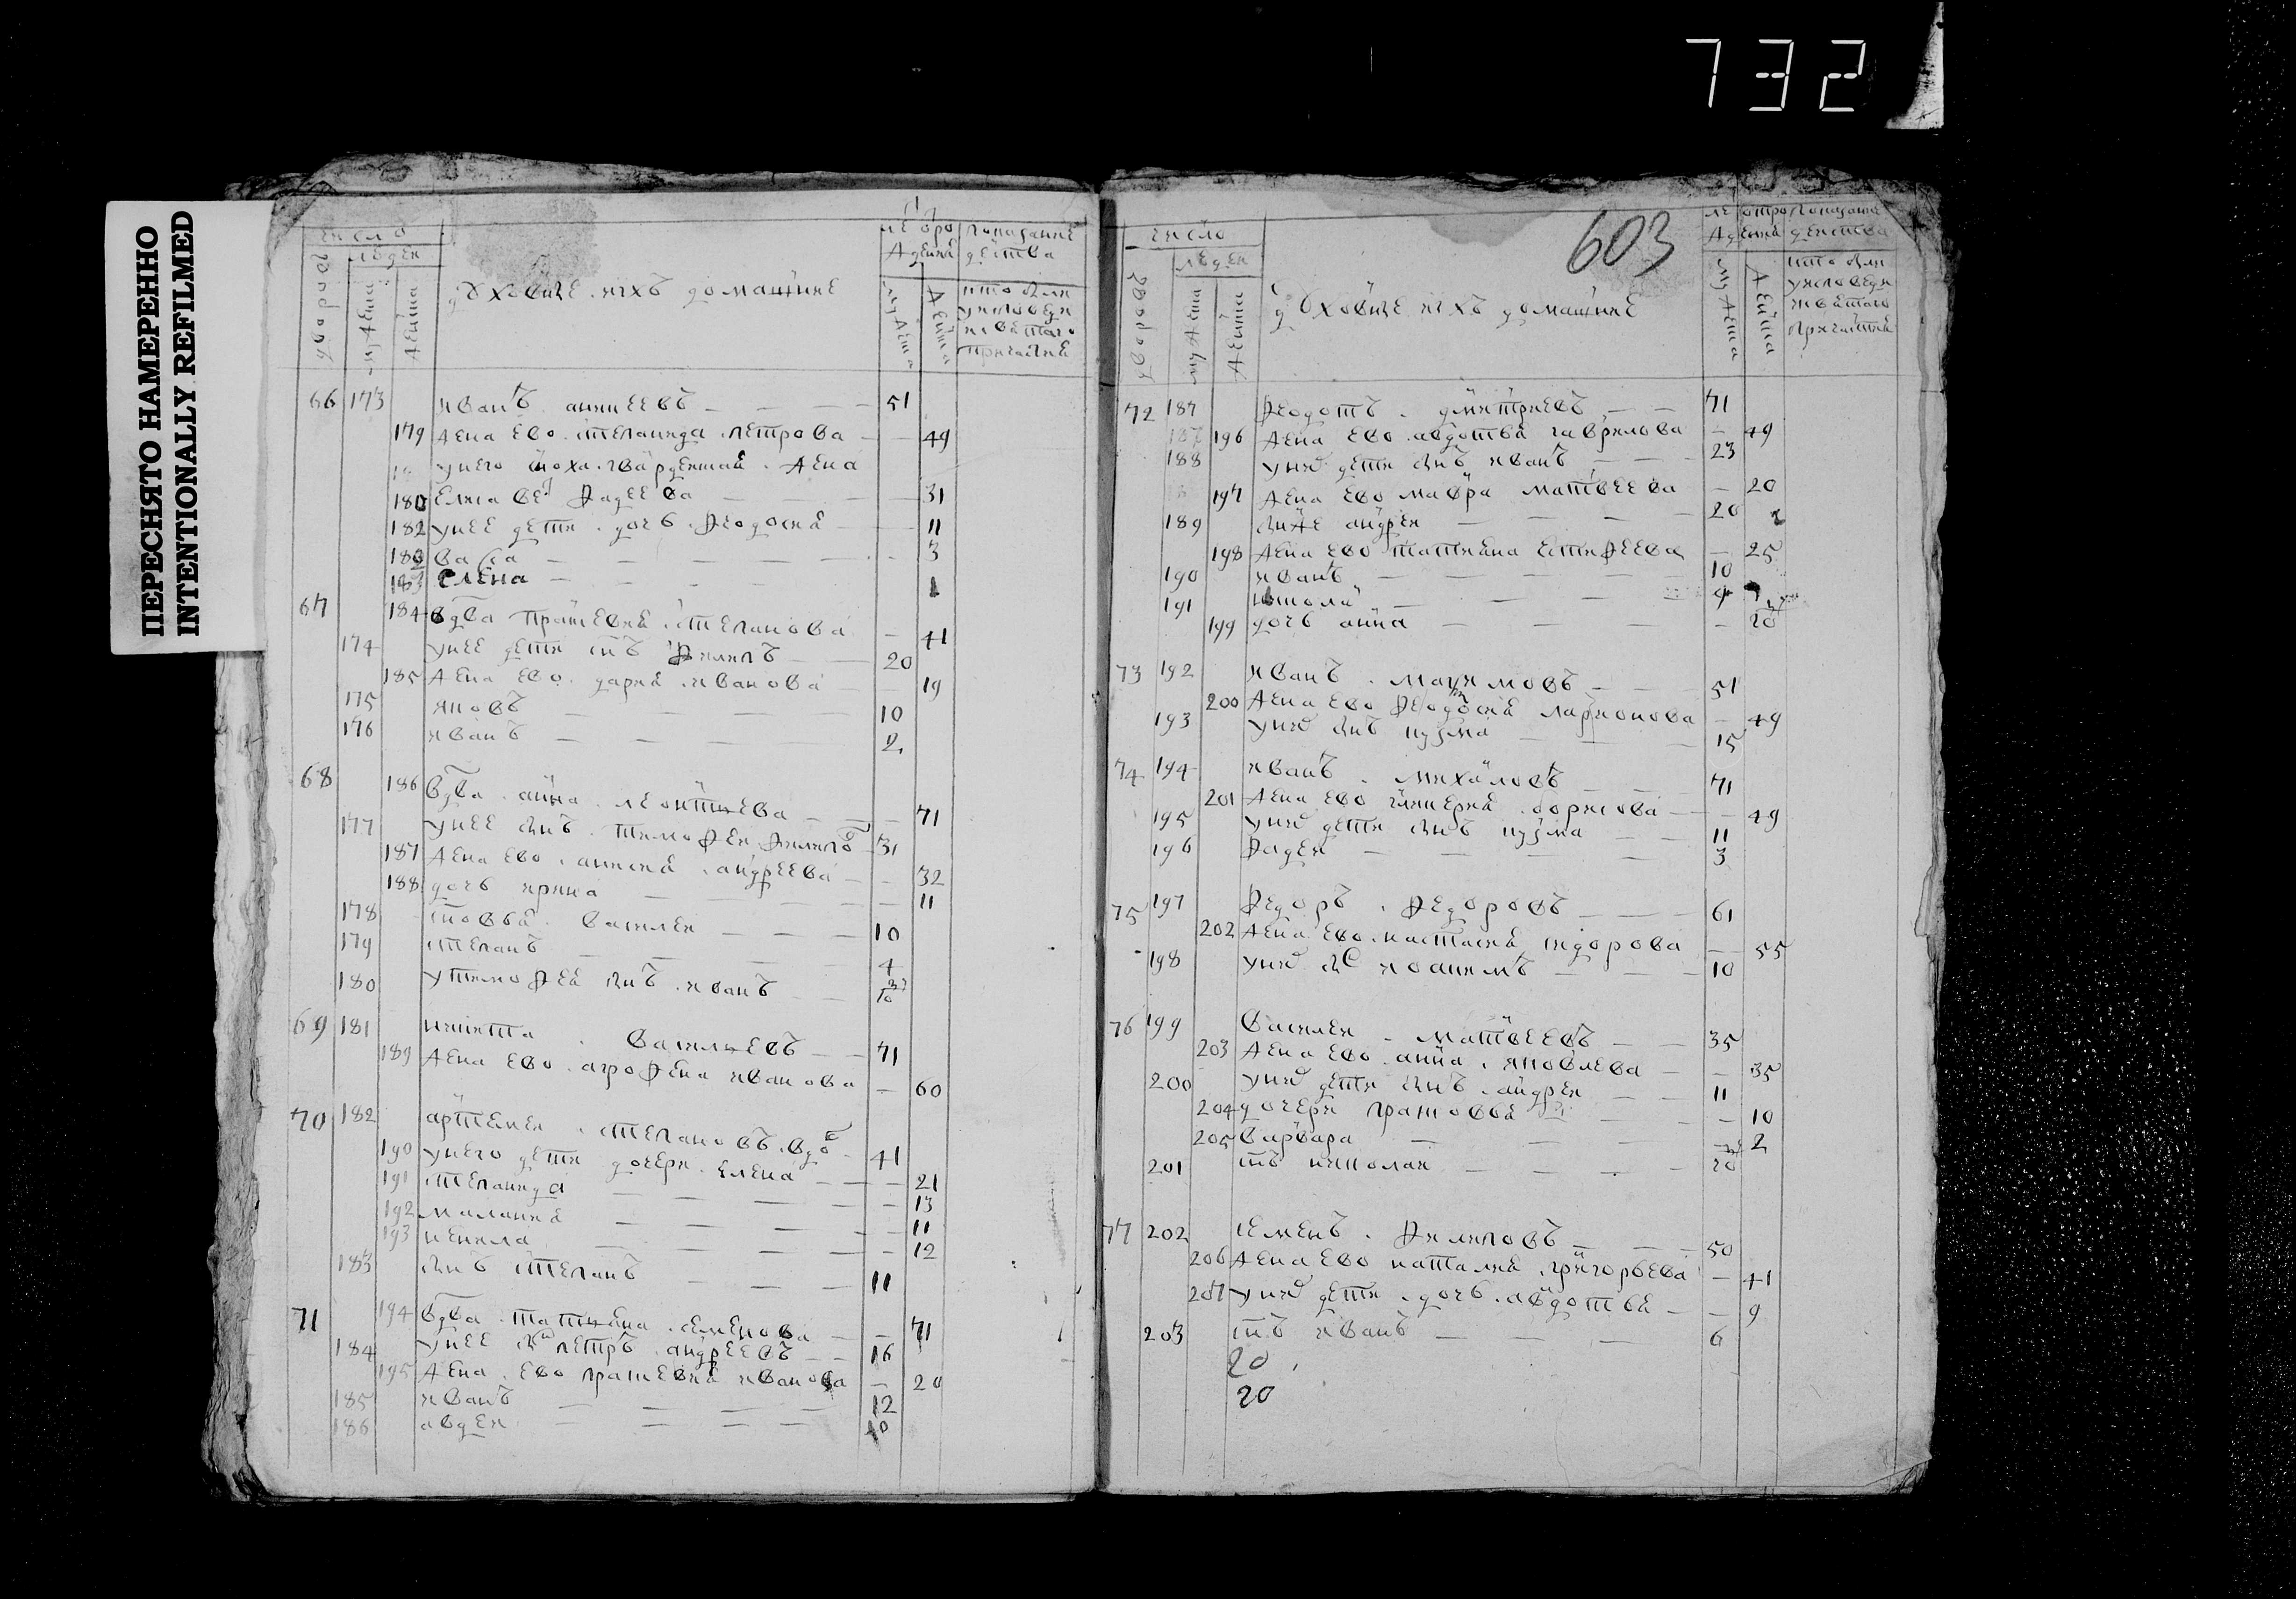 732
ПЕРЕСНЯТО НАМЕРЕННО
INTENTIONALLY REFILMED
число
людей
дворовъ
мужеска
женска
духовные ихъ домашние
мужеска
женска
66 173 иванъ аникеевъ 51
179 жена ево степанида петрова 49
у него сноха гвардейская жена
180 елисаве фадеева 31
182 у нее дети дочь феодосия 11
183 васса 3
183 елена 1
67 184 вдва прасковия степанова 41
174 у нее дети снъ филипъ 20
185 жена ево дария иванова 19
175 яковъ 10
176 иванъ 2
68 186 вдва анна леонтиева 71
177 у нее снъ тимофеи филипо 31
187 жена ево анисия андреева 32
188 дочь ирина 11
178 василеи 10
179 степанъ 4
180 у тимофея снъ иванъ
69 181 никита васильевъ 71
189 жена ево агрофена иванова 60
70 182 артемеи степановъ вдо 41
190 у него дети дочери елена 21
191 степанида 13
192 малания 11
193 акилина 12
183 снъ степанъ 11
71 194 вдва татияна семенова 71
184 у нее снъ петръ андреевъ 16
195 жена ево прасковия иванова 20
185 иванъ 12
186 авдеи 10
603
число
людей
дворовъ
мужеска
женска
духовные ихъ домашние
мужеска
женска
72 187 феодотъ дмитриевъ 71
196 жена ево авдотья гаврилова 49
188 у них дети снъ иванъ 23
197 жена ево мавра матвеева 20
189 андреи 20
198 жена ево татияна естифеева 25
190 иванъ 10
191 никола
199 дочь анна
73 192 иванъ махимовъ 51
200 жена ево феодосия ларионова 49
193 у них снъ кузма 15
74 194 иванъ михаиловъ 71
201 жена ево гликерия борисова 49
195 у них дети снъ кузма 11
196 фадеи 3
75 197 федоръ федоровъ 61
202 жена ево настасия сидорова 55
198 у них снъ иоакимъ 10
76 199 василеи матвеевъ 35
203 жена ево анна яковлева 35
200 у них дети снъ андреи 11
204 дочери прасковья 10
205 варвара 2
201 снъ николаи
77 202 семенъ филиповъ 50
206 жена ево наталия григорьева 41
207 у них дети дочь авдотья 9
203 снъ иванъ 6
20
20